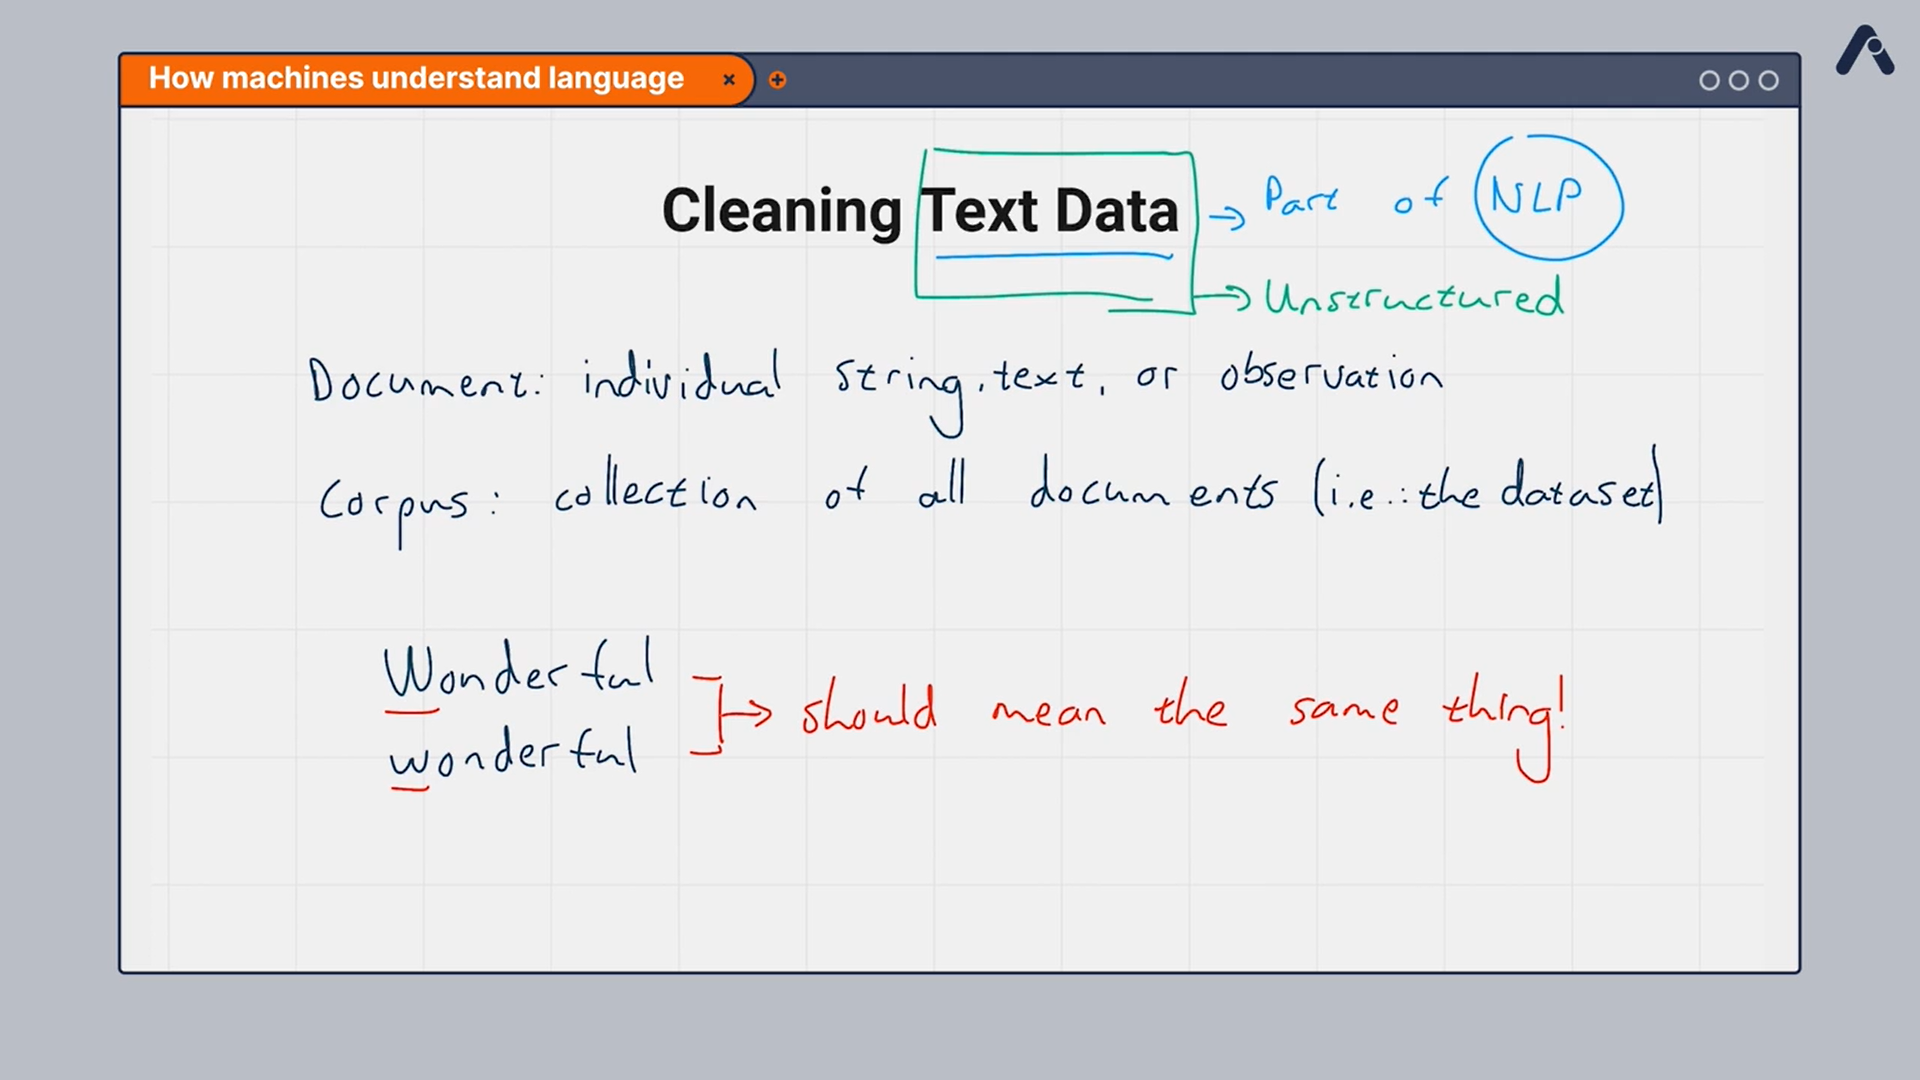 How machines understand language
Cleaning Text Data → Part of NLP
→ Unstructured
Document: individual string, text, or observation
Corpus: collection of all documents (i.e.: the dataset)
Wonderful
→ should mean the same thing!
wonderful